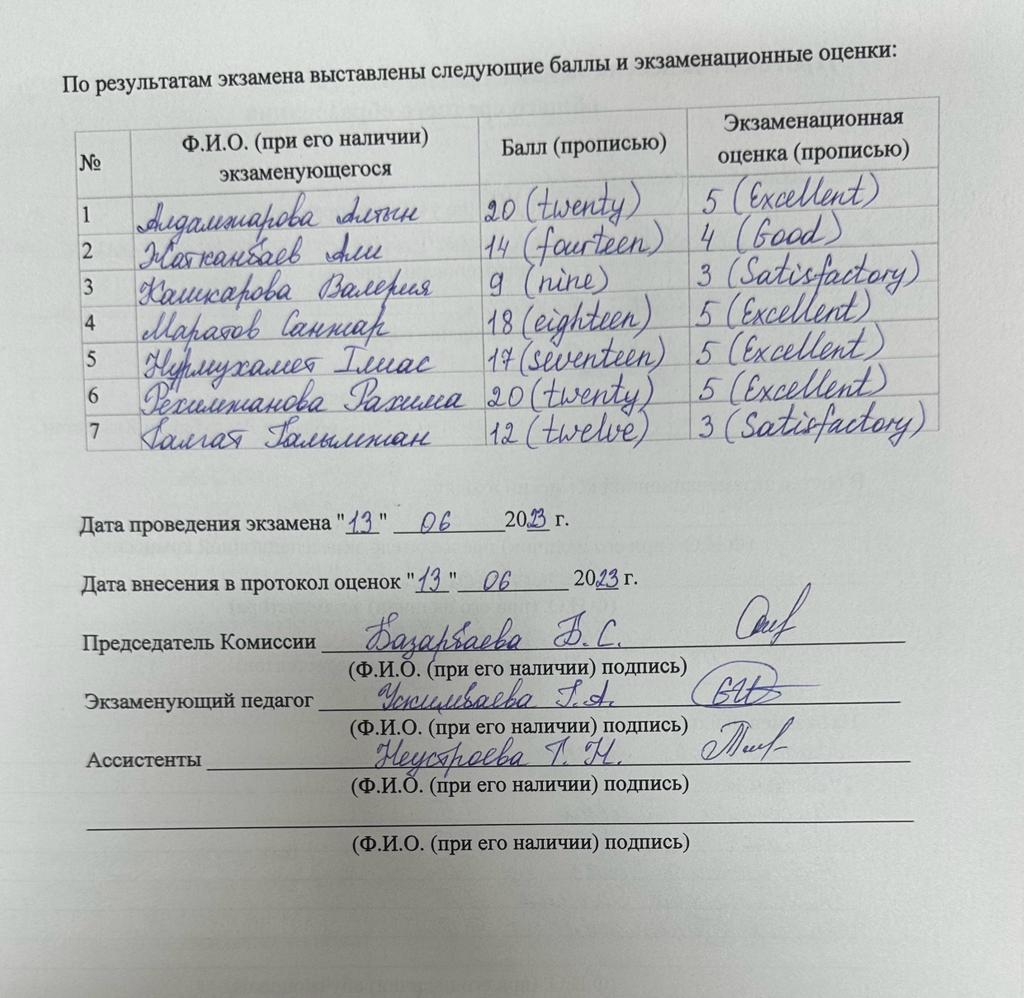 По результатам экзамена выставлены следующие баллы и экзаменационные оценки:
№ Ф.И.О. (при его наличии) экзаменующегося Балл (прописью) Экзаменационная оценка (прописью)
1 Алдамжарова Алтын 20 (twenty) 5 (Excellent)
2 Жатканбаев Али 14 (fourteen) 4 (Good)
3 Кашкарова Валерия 9 (nine) 3 (Satisfactory)
4 Маратов Санжар 18 (eighteen) 5 (Excellent)
5 Нурмухамет Ілиас 17 (seventeen) 5 (Excellent)
6 Рехимжанова Рахима 20 (twenty) 5 (Excellent)
7 Талгат Галымжан 12 (twelve) 3 (Satisfactory)
Дата проведения экзамена "13" 06 2023 г.
Дата внесения в протокол оценок "13" 06 2023 г.
Председатель Комиссии Базарбаева Б. С.
(Ф.И.О. (при его наличии) подпись)
Экзаменующий педагог Ускимбаева Г. А.
(Ф.И.О. (при его наличии) подпись)
Ассистенты Неустроева Т. Н.
(Ф.И.О. (при его наличии) подпись)
(Ф.И.О. (при его наличии) подпись)